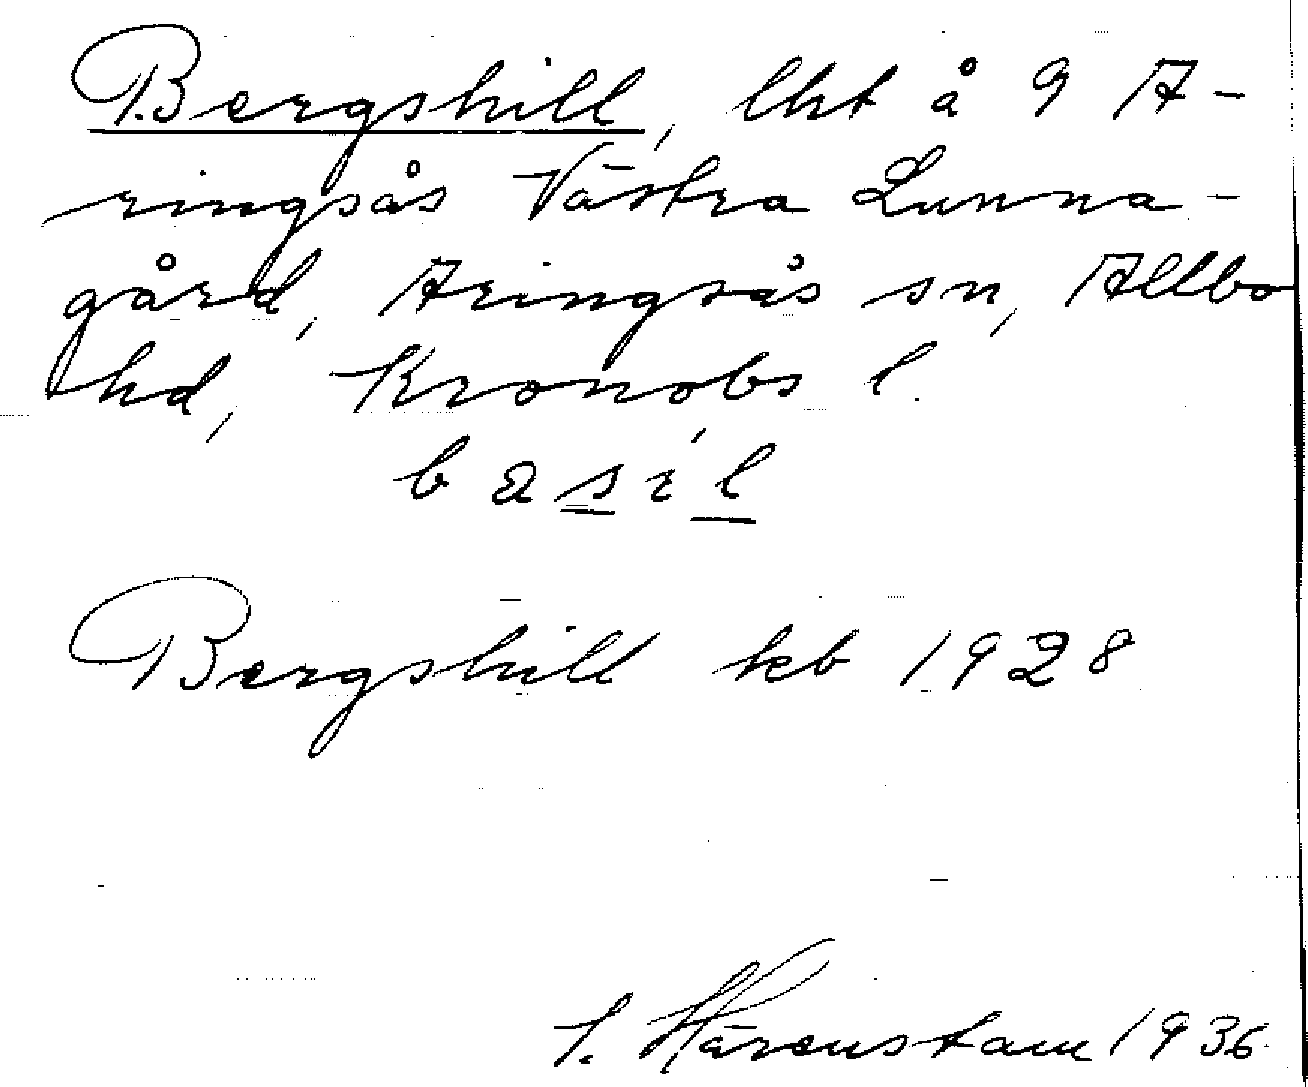 Bergshill, lht å 9 A-
ringsås Västra Lunna-
gård, Aringsås sn, Allbo
hd, Kronobs l.
basil
Bergshill kb 1928
Härenstam 1936